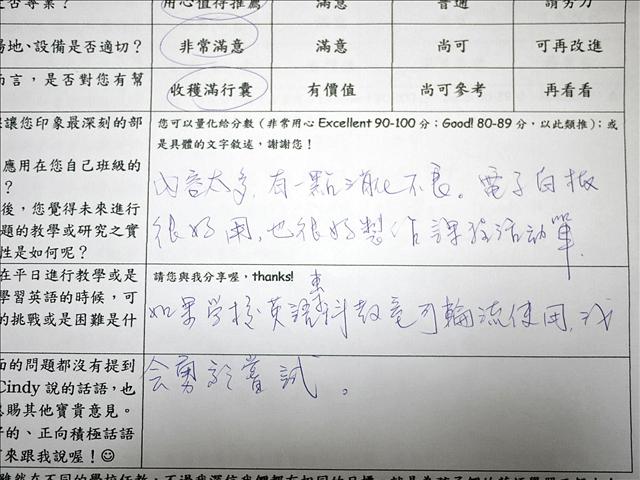 是否專業？ 用心值得推薦 滿意 普通 請努力
場地、設備是否適切？ 非常滿意 滿意 尚可 可再改進
而言，是否對您有幫 收穫滿行囊 有價值 尚可參考 再看看
讓您印象最深刻的部 您可以量化給分數（非常用心 Excellent 90-100 分；Good! 80-89 分，以此類推）；或
是具體的文字敘述，謝謝您！
應用在您自己班級的
？
內容太多，有一點消化不良。電子白板
後，您覺得未來進行
題的教學或研究之實
很好用，也很好製作課程活動單。
性是如何呢？
在平日進行教學或是 請您與我分享喔，thanks!
學習英語的時候，可
的挑戰或是困難是什
如果學校英語科教室可輪流使用，我
面的問題都沒有提到
會勇於嘗試。
Cindy 說的話語，也
賜其他寶貴意見。
的、正向積極話語
來跟我說喔！☺
雖然在不同的學校任教，不過我深信我們都有相同的目標，就是為孩子們的